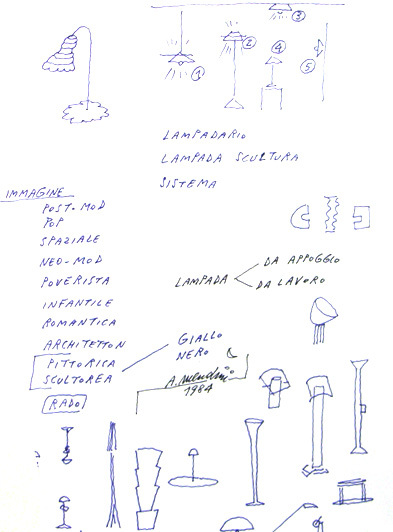 3
1
2
4
5
LAMPADARIO
LAMPADA SCULTURA
SISTEMA
IMMAGINE
POST-MOD
POP
SPAZIALE
NEO-MOD
POVERISTA
INFANTILE
ROMANTICA
ARCHITETTON
PITTORICA
SCULTOREA
RADO
LAMPADA
DA APPOGGIO
DA LAVORO
GIALLO
NERO
A. Mendini
1984